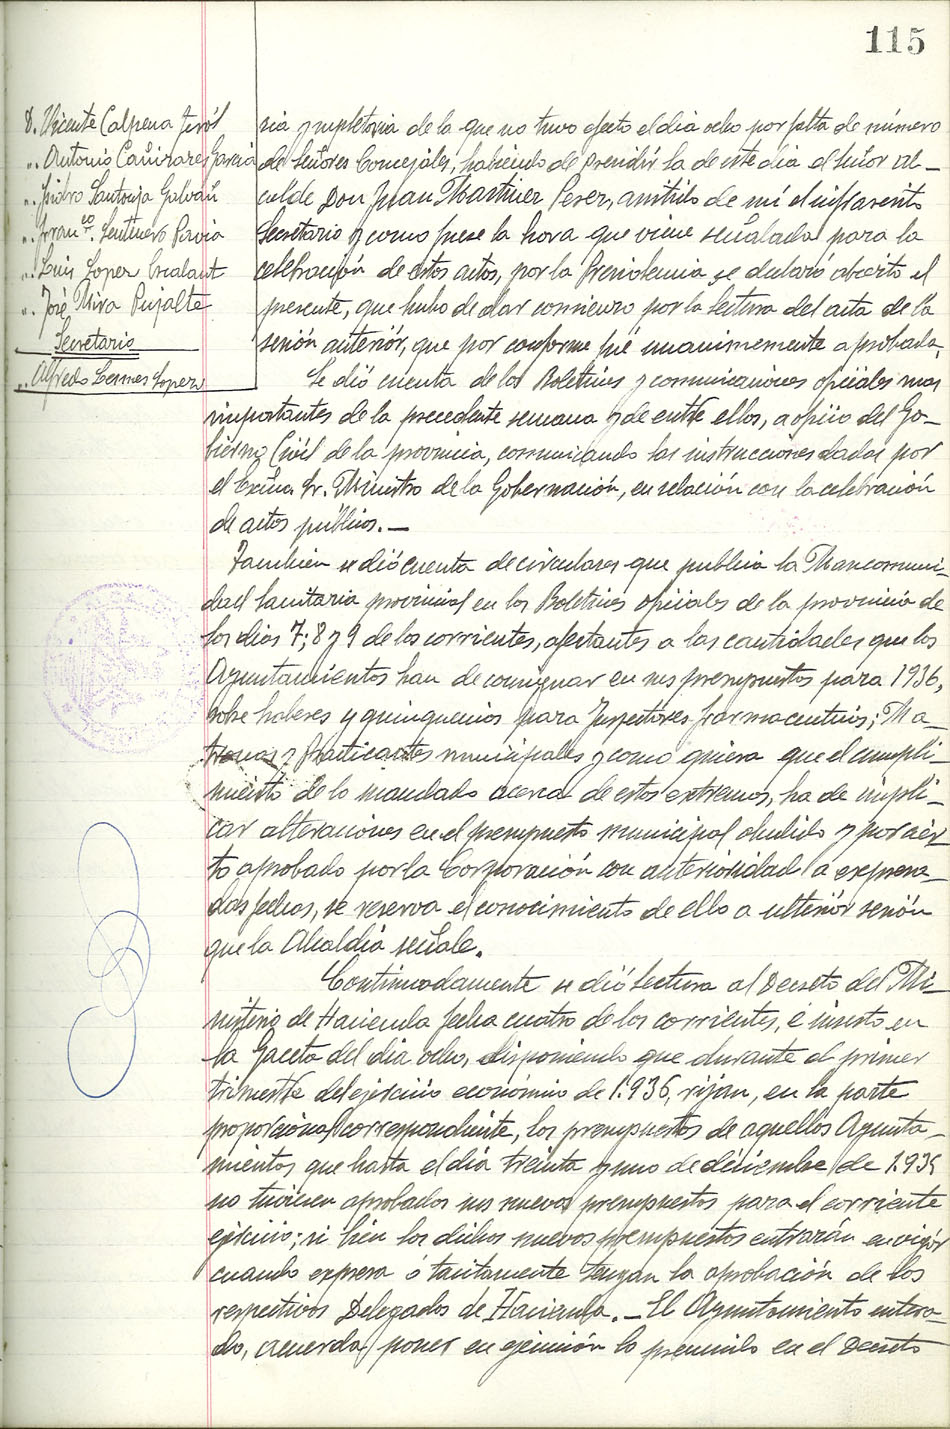 115
D. Vicente Calpena Teról
". Antonio Cañizares García
". Isidro Santonja Galvañ
". Fran.co Sentenero Pavia
". Luis Lopez Escalant
". José Mira Pujalte
Secretario
". Alfredo Lopez
ria supletoria de la que no tuvo efecto el dia ocho por falta de número
de Señores Concejales, habiendo de presidir la de este dia el señor Al-
calde Don Juan Martinez Perez, asistido de mí el infrascrito
Secretario y como fuese la hora que viene señalada para la
celebración de estos actos, por la Presidencia se declaró abierto el
presente, que hubo de dar comienzo por la lectura del acta de la
sesión anteriór, que por conforme fué unanimemente aprobada.
Se dió cuenta de los Boletines y comunicaciones oficiales mas
importantes de la precedente semana y de entre ellos, a oficio del Go-
bierno Civil de la provincia, comunicando las instrucciones dadas por
el Excmo. Sr. Ministro de la Gobernación, en relación con la celebración
de actos públicos.—
Tambien se dió cuenta de circulares que publica la Mancomuni-
dad Sanitaria provincial en los Boletines oficiales de la provincia de
los dias 7; 8 y 9 de los corrientes, afectantes a las cantidades que los
Ayuntamientos han de consignar en sus presupuestos para 1936,
sobre haberes y quinquenios para Inspectores farmaceuticos; Ma-
tronas y Practicantes municipales y como quiera que el cumpli-
miento de lo mandado acerca de estos extremos, ha de impli-
car alteraciones en el presupuesto municipal aludido y por cier-
to aprobado por la Corporación con anterioridad a expresa-
das fechas, se reserva el conocimiento de ello a ulteriór sesión
que la Alcaldia señale.
Continuadamente se dió lectura al Decreto del Mi-
nisterio de Hacienda fecha cuatro de los corrientes, é inserto en
la Gaceta del dia ocho, disponiendo que durante el primer
trimestre del ejercicio económico de 1.936, rijan, en la parte
proporcional correspondiente, los presupuestos de aquellos Ayunta-
mientos que hasta el dia treinta y uno de diciembre de 1.935
no tuviesen aprobados sus nuevos presupuestos para el corriente
ejercicio; si bien los dichos nuevos presupuestos entrarán en vigór
cuando expresa ó tacitamente tengan la aprobación de los
respectivos Delegados de Hacienda.— El Ayuntamiento entera-
do, acuerda poner en ejecución lo prevenido en el Decreto